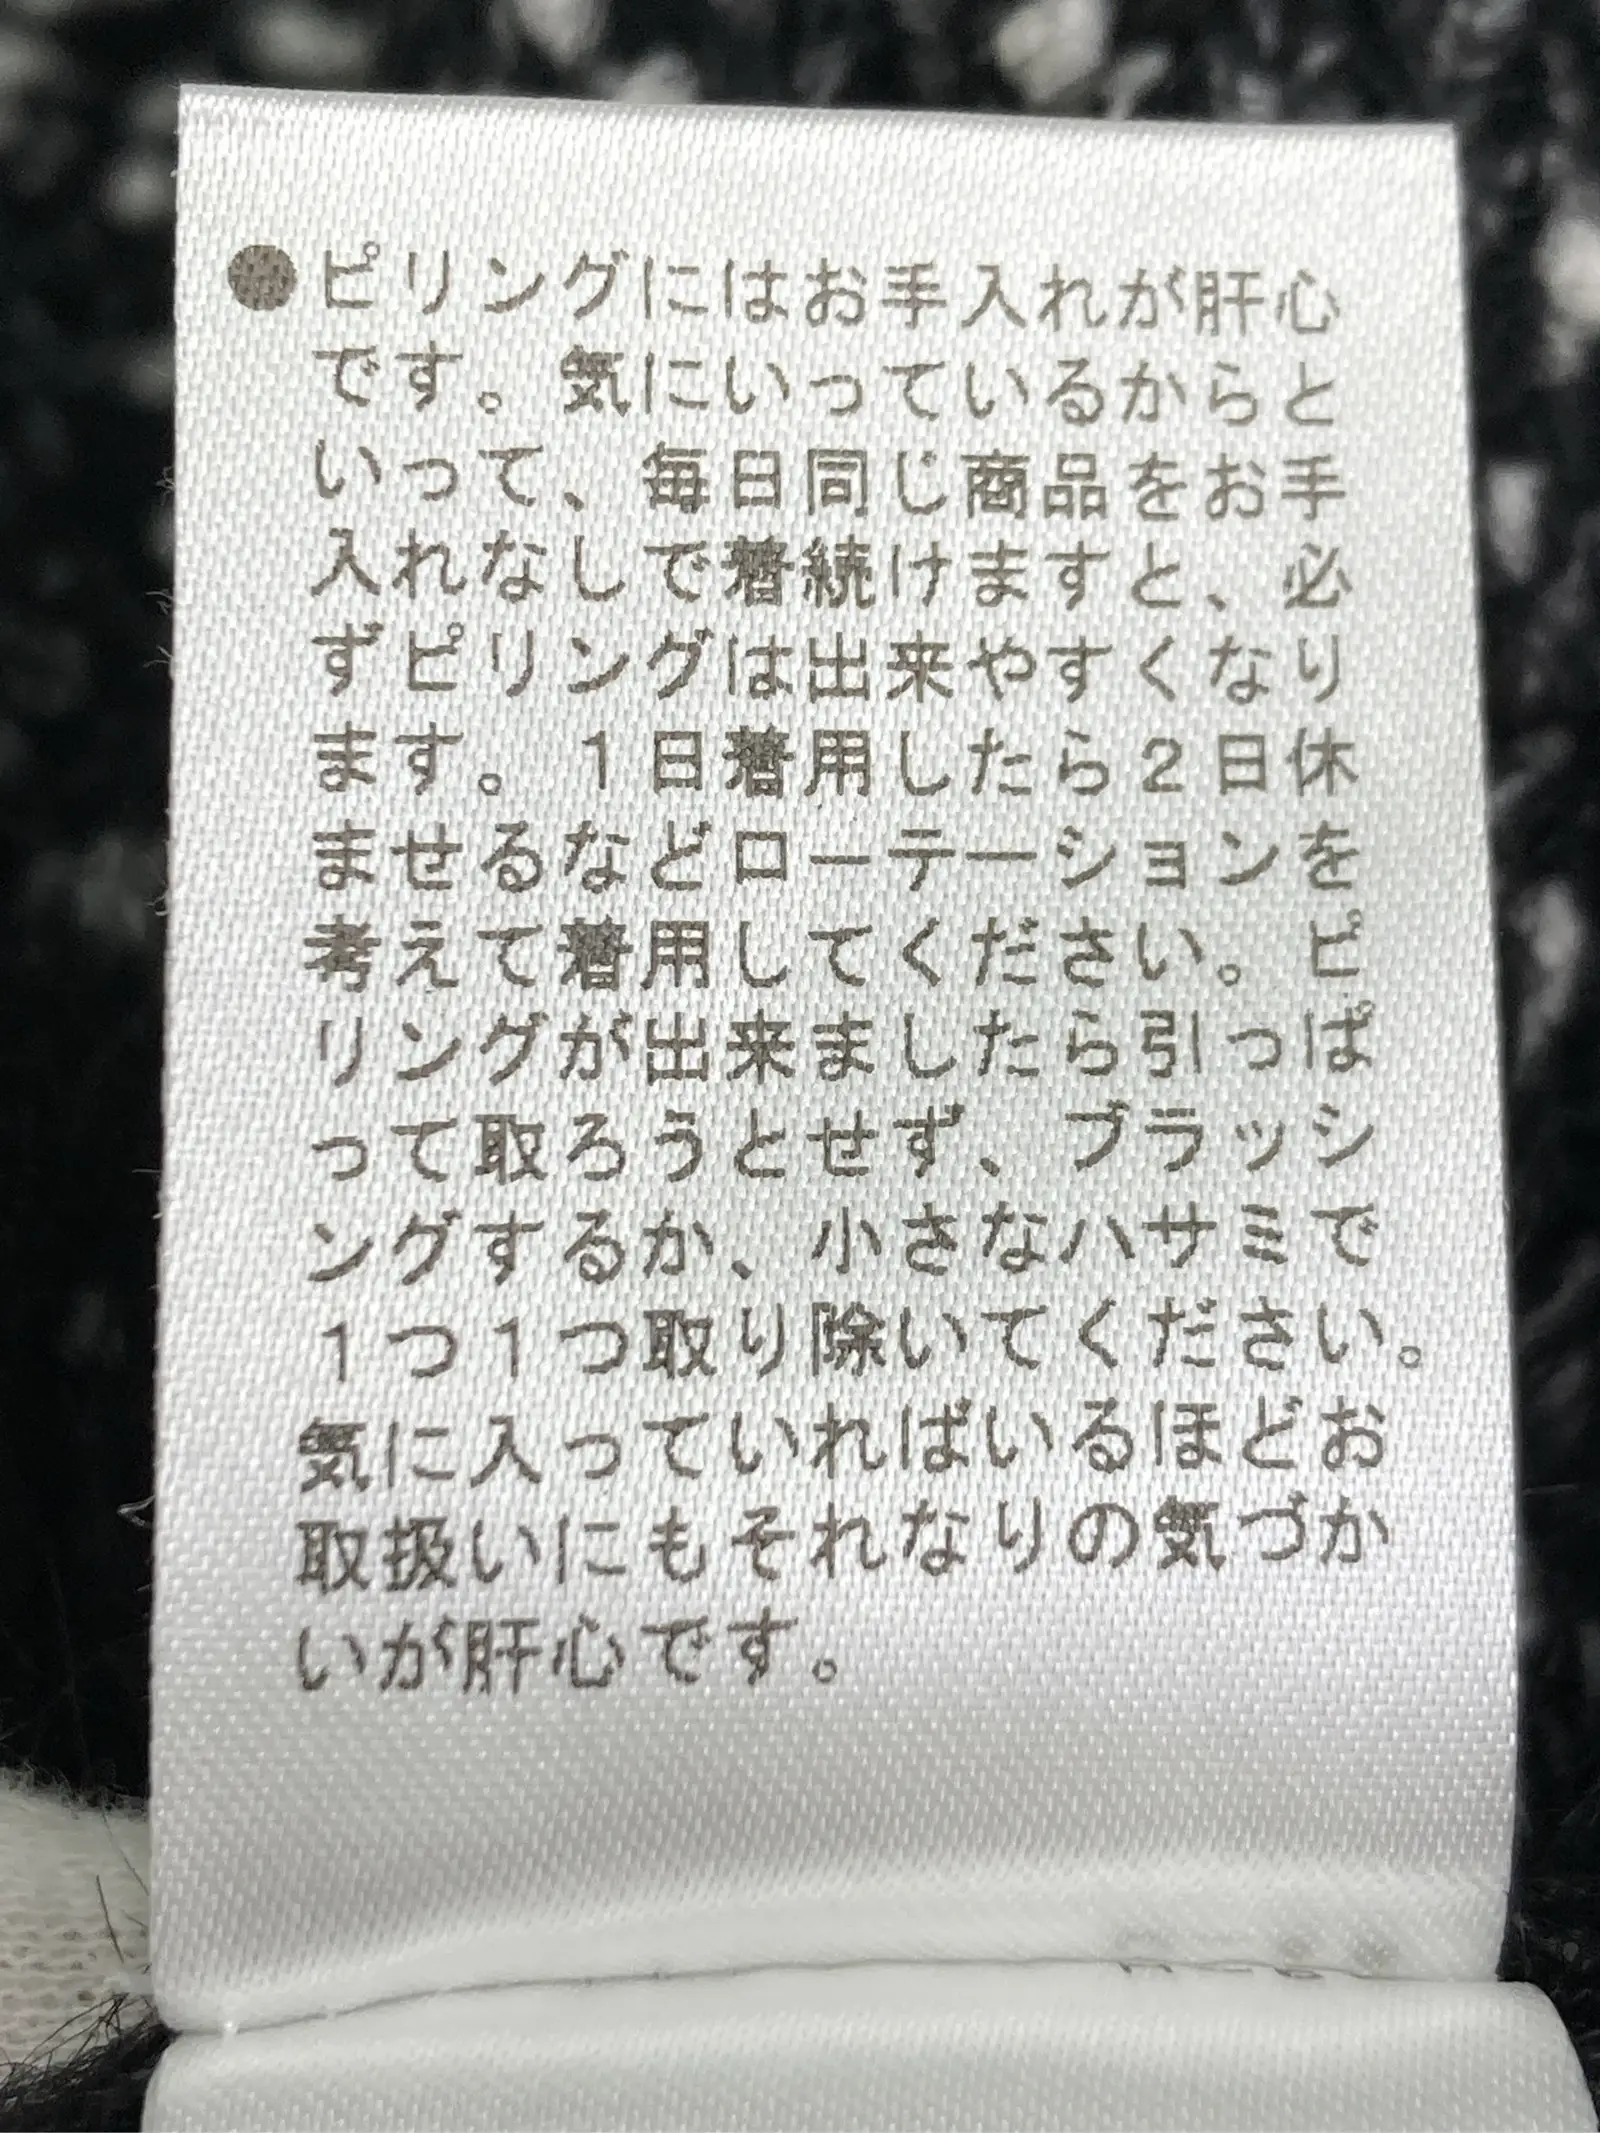 ●ピリングにはお手入れが肝心
です。気にいっているからと
いって、毎日同じ商品をお手
入れなしで着続けますと、必
ずピリングは出来やすくなり
ます。1日着用したら2日休
ませるなどローテーションを
考えて着用してください。ピ
リングが出来ましたら引っぱ
って取ろうとせず、ブラッシ
ングするか、小さなハサミで
1つ1つ取り除いてください。
気に入っていればいるほどお
取扱いにもそれなりの気づか
いが肝心です。